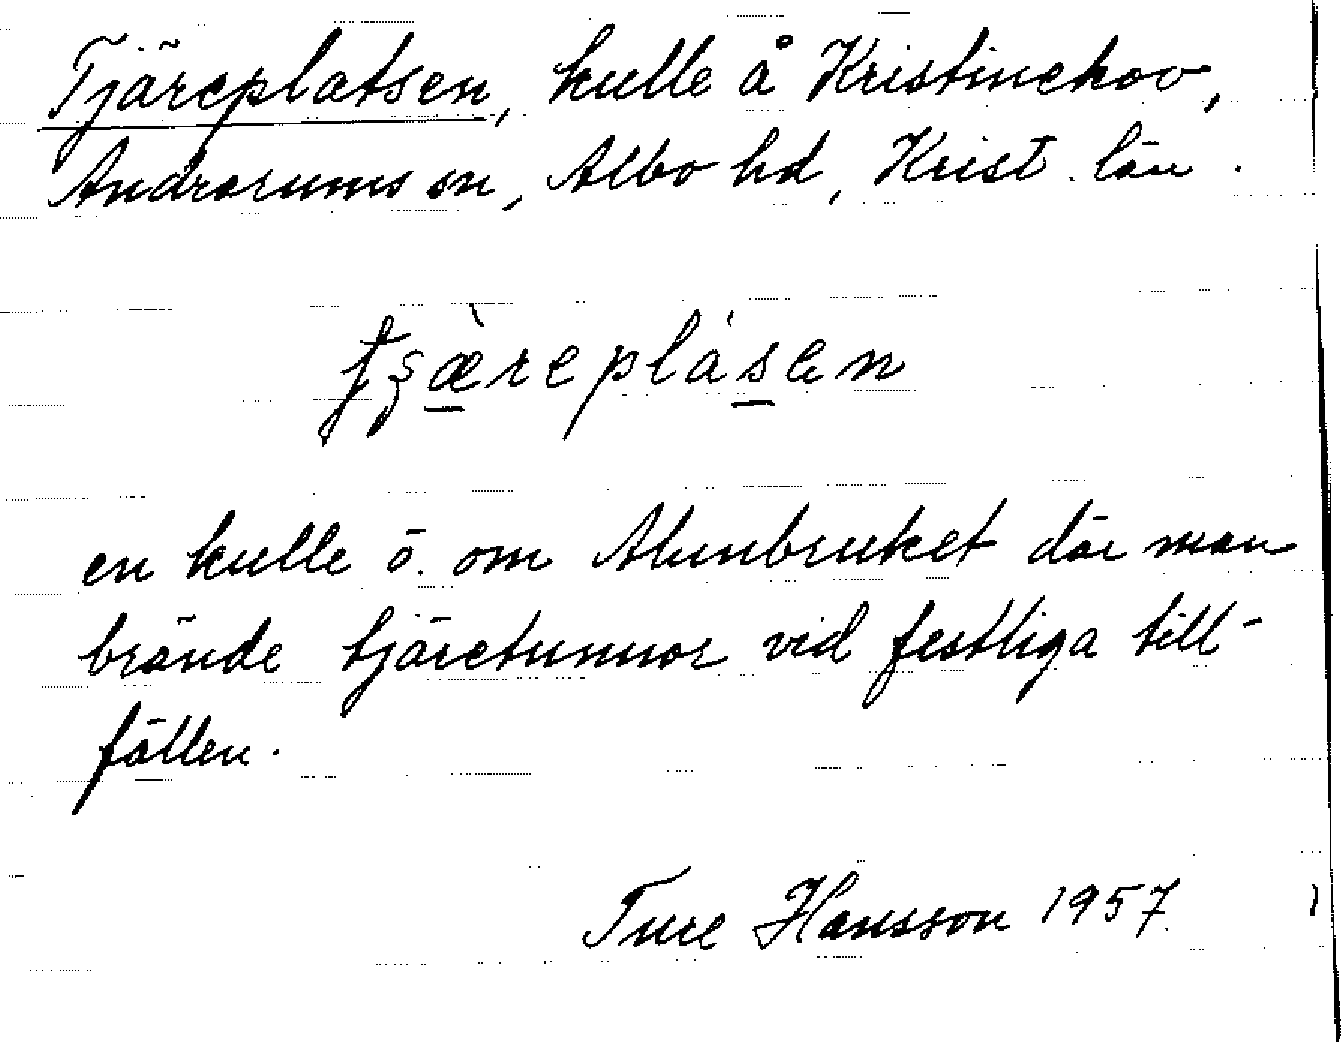 Tjäreplatsen, kulle å Kristinehov,
Andrarums sn, Albo hd, Krist. län.
en kulle ö. om Alunbruket där man
brände tjäretunnor vid festliga till-
fällen.
Ture Hansson 1957.